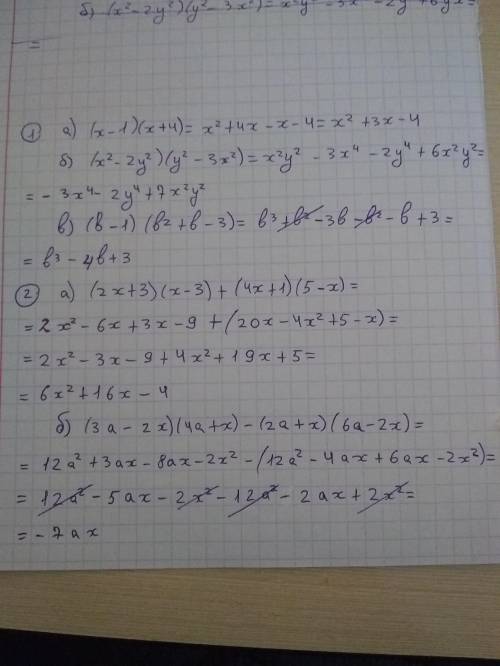 б) (x²-2y²)(y²-3x²)=x²y²-3x⁴-2y⁴+6y²x²=
=
① а) (x-1)(x+4)=x²+4x-x-4=x²+3x-4
б) (x²-2y²)(y²-3x²)=x²y²-3x⁴-2y⁴+6x²y²=
=-3x⁴-2y⁴+7x²y²
в) (b-1)(b²+b-3)=b³+b²-3b-b²-b+3=
=b³-4b+3
② а) (2x+3)(x-3)+(4x+1)(5-x)=
=2x²-6x+3x-9+(20x-4x²+5-x)=
=2x²-3x-9+4x²+19x+5=
=6x²+16x-4
б) (3a-2x)(4a+x)-(2a+x)(6a-2x)=
=12a²+3ax-8ax-2x²-(12a²-4ax+6ax-2x²)=
=12a²-5ax-2x²-12a²-2ax+2x²=
=-7ax